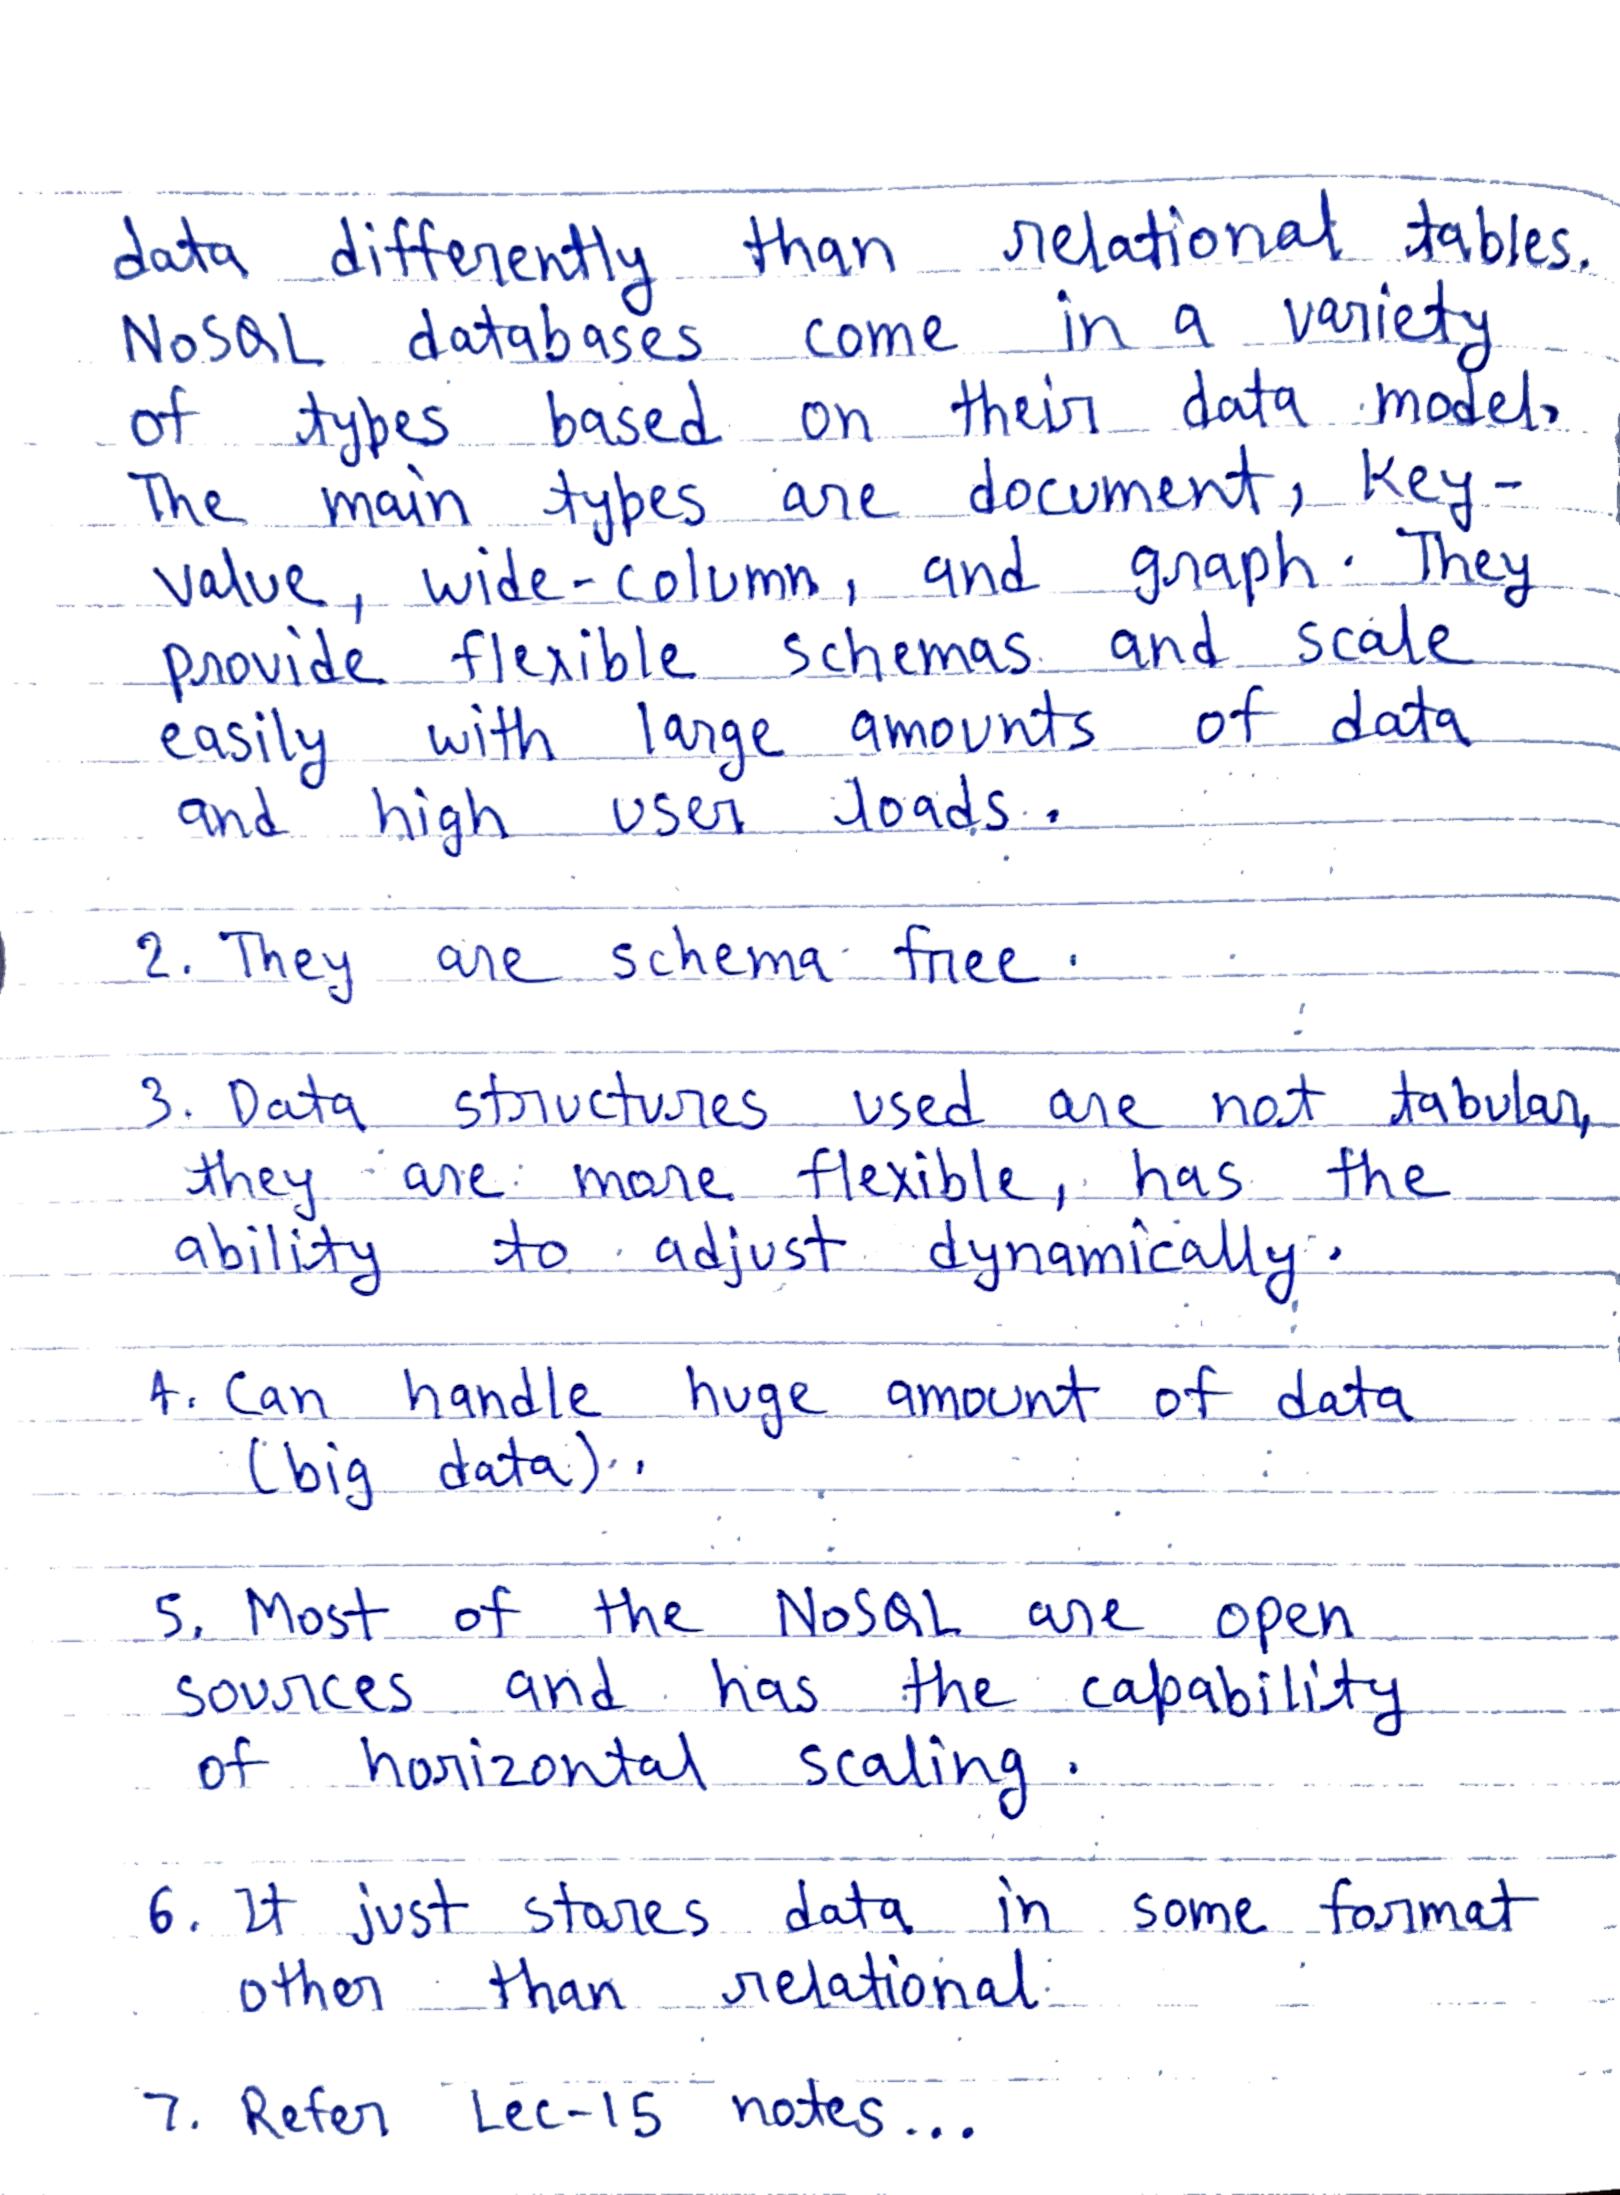 data differently than relational tables.
NoSQL databases come in a variety
of types based on their data model.
The main types are document, key-
value, wide-column, and graph. They
provide flexible schemas and scale
easily with large amounts of data
and high user loads.
2. They are schema free.
3. Data structures used are not tabular,
they are more flexible, has the
ability to adjust dynamically.
4. Can handle huge amount of data
(big data).
5. Most of the NoSQL are open
sources and has the capability
of horizontal scaling.
6. It just stores data in some format
other than relational.
7. Refer Lec-15 notes...